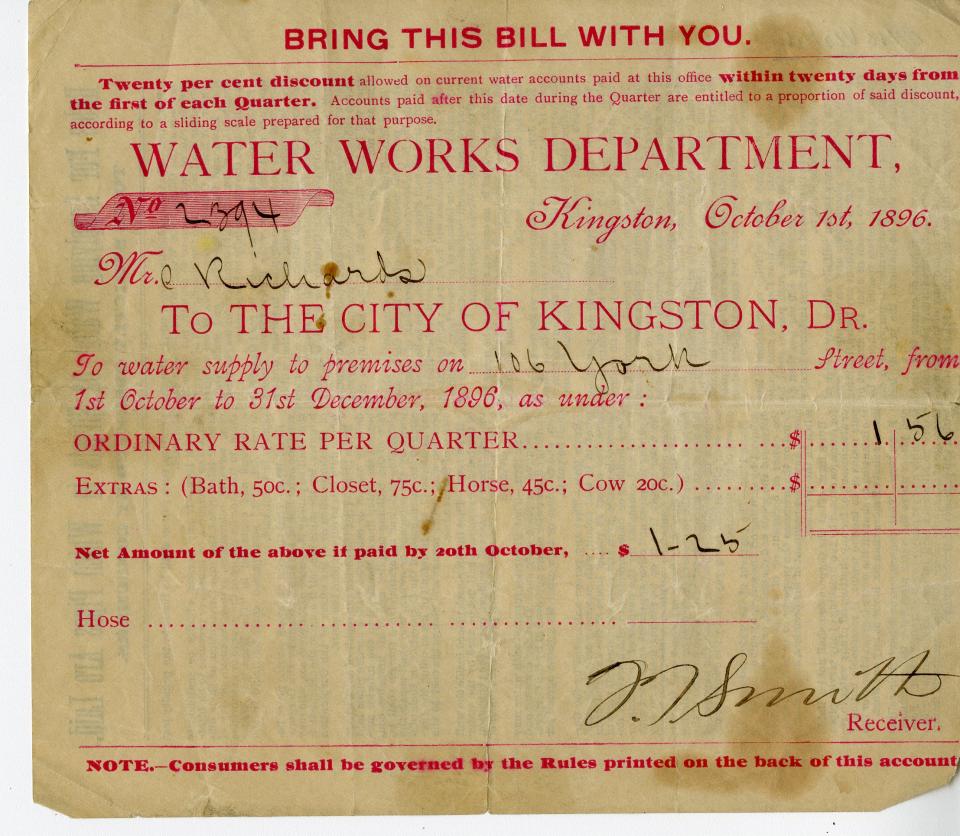 BRING THIS BILL WITH YOU.
Twenty per cent discount allowed on current water accounts paid at this office within twenty days from
the first of each Quarter. Accounts paid after this date during the Quarter are entitled to a proportion of said discount,
according to a sliding scale prepared for that purpose.
WATER WORKS DEPARTMENT,
No 2394
Kingston, October 1st, 1896.
Mr. C Richards
To THE CITY OF KINGSTON, DR.
To water supply to premises on 106 York Street, from
1st October to 31st December, 1896, as under :
ORDINARY RATE PER QUARTER.......................... ...$ 1 56
EXTRAS : (Bath, 50c.; Closet, 75c.; Horse, 45c.; Cow 20c.) ..........$
Net Amount of the above if paid by 20th October, .... $ 1-25
Hose ................................................
Smith
Receiver.
NOTE.—Consumers shall be governed by the Rules printed on the back of this account